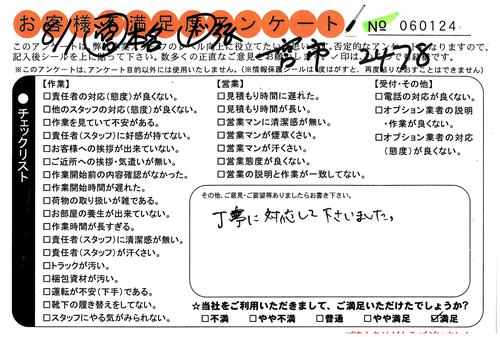 お客様不満足度アンケート! № 060124
このアンケートは、弊
記入後シールを上に貼って下さい。数多くの正直なご意見
※このアンケートは、アンケート目的以外には使用いたしません。(※情報保護シールは1度はがすと、再度貼りなおすことはできません)
一宮市 2478
チェックリスト
【作業】
□責任者の対応(態度)が良くない。
□他のスタッフの対応(態度)が良くない。
□作業を見ていて不安がある。
□責任者(スタッフ)に好感が持てない。
□お客様への挨拶が出来ていない。
□ご近所への挨拶・気遣いが無い。
□作業開始前の内容確認がなかった。
□作業開始時間が遅れた。
□荷物の取り扱いが雑である。
□お部屋の養生が出来ていない。
□作業時間が長すぎる。
□責任者(スタッフ)に清潔感が無い。
□責任者(スタッフ)が汗くさい。
□トラックが汚い。
□梱包資材が汚い。
□運転が不安(下手)である。
□靴下の履き替えをしてない。
□スタッフにやる気がみられない。
【営業】
□見積もり時間に遅れた。
□見積もり時間が長い。
□営業マンに清潔感が無い。
□営業マンが煙草くさい。
□営業マンが汗くさい。
□営業態度が良くない。
□営業の説明と作業が一致してない。
【受付・その他】
□電話の対応が良くない。
□オプション業者の説明
・作業が良くない。
□オプション業者の対応
(態度)が良くない。
その他、ご意見・ご要望等ありましたらお書き下さい。
丁寧に対応して下さいました。
☆当社をご利用いただきまして、ご満足いただけたでしょうか?
□不満 □やや不満 □普通 □やや満足 ☑満足